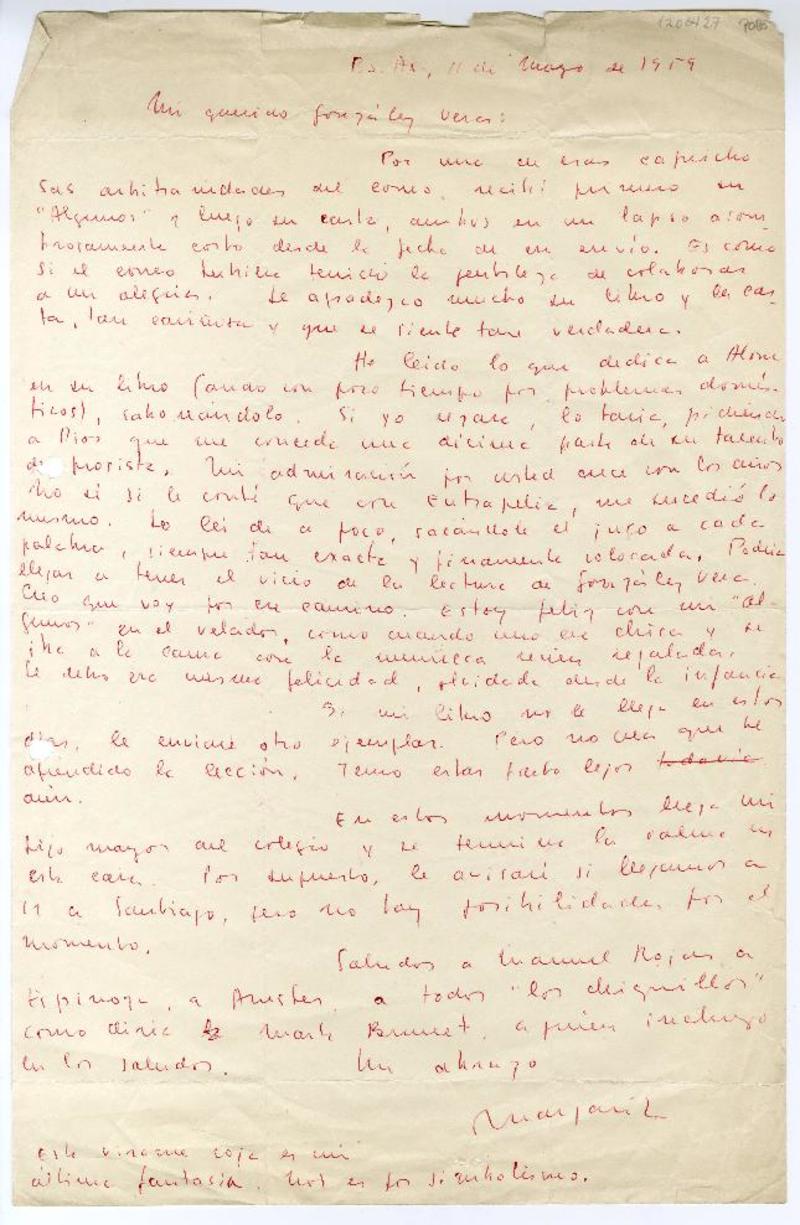 1200427 7085
Bs. As., 11 de Mayo de 1959
Mi querido González Vera:
Por una de esas capricho
sas arbitrariedades del correo, recibí primero su
"Algunos" y luego su carta, ambos en un lapso asom
brosamente corto desde la fecha de su envío. Es como
si el correo hubiera tenido la gentileza de colaborar
a mi alegría. Le agradezco mucho su libro y la car-
ta, tan cariñosa y que se siente tan verdadera.
He leido lo que dedica a Alone
en su libro (ando con poco tiempo por problemas domés-
ticos), saboreándolo. Si yo rezara, lo haría, pidiendo
a Dios que me conceda una décima parte de su talento
de prosista. Mi admiración por usted crece con los años
No sé si le conté que con Eutrapelia, me sucedió lo
mismo. Lo leí de a poco, sacándole el jugo a cada
palabra, siempre tan exacta y finamente colocada. Podría
llegar a tener el vicio de la lectura de González Vera.
Creo que voy por ese camino. Estoy feliz con mi "Al-
gunos" en el velador, como cuando uno era chica y se
iba a la cama con la muñeca recien regalada.
Le debo esa misma felicidad, olvidada desde la infancia
Si mi libro no le llega en estos
días, le enviaré otro ejemplar. Pero no crea que he
aprendido la lección. Temo estar harto lejos todavía
aún.
En estos momentos llega mi
hijo mayor del colegio y se termina la calma en
esta casa. Por supuesto, le avisaré si llegamos a
ir a Santiago, pero no hay posibilidades por el
momento.
Saludos a Manuel Rojas, a
Espinoza, a Anestes, a todos "los chiquillos"
como diría Marta Brunet, a quien incluyo
en los saludos. Un abrazo
Margarita
Este virome roja es mi
última fantasía. No es por simbolismo.